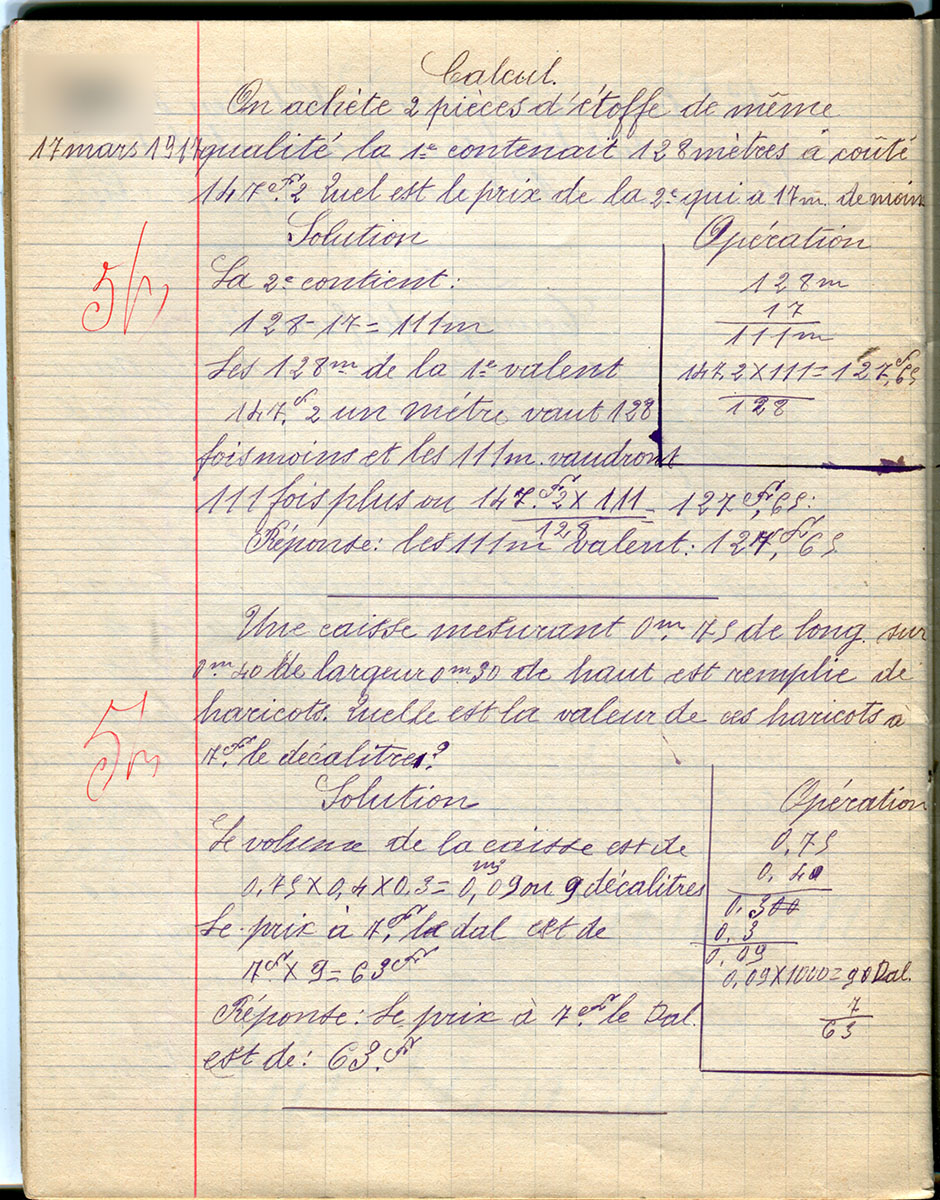 Calcul.
On achète 2 pièces d'étoffe de même
17 mars 1917
qualité la 1e contenait 128 mètres à coûté
147,Fr 2 Quel est le prix de la 2e qui a 17 m. de moins
Solution
Opération
5
La 2e contient :
128 - 17 = 111m
Les 128m de la 1e valent
147,fr 2 un mètre vaut 128
fois moins et les 111 m. vaudront
111 fois plus ou 147,Fr 2 X 111 = 127,Fr 65 :
128
Réponse : les 111m valent : 127,Fr 65
128m
17
111m
147,2 X 111 = 127,fr 65
128
Une caisse mesurant 0m,75 de long. sur
0m 40 de largeur 0m 30 de haut est remplie de
haricots. Quelle est la valeur de ces haricots à
7Fr. le décalitre ?
5
Solution
Opération
Le volume de la caisse est de
0,75 X 0,4 X 0,3 = 0,m3 09 ou 9 décalitres
Le prix à 7Fr. le dal est de
7Fr. X 9 = 63Fr
Réponse : Le prix à 7Fr. le Dal.
est de : 63.Fr
0,75
0,40
0,300
0,3
0,09
0,09 X 1000 = 90 Dal.
7
63